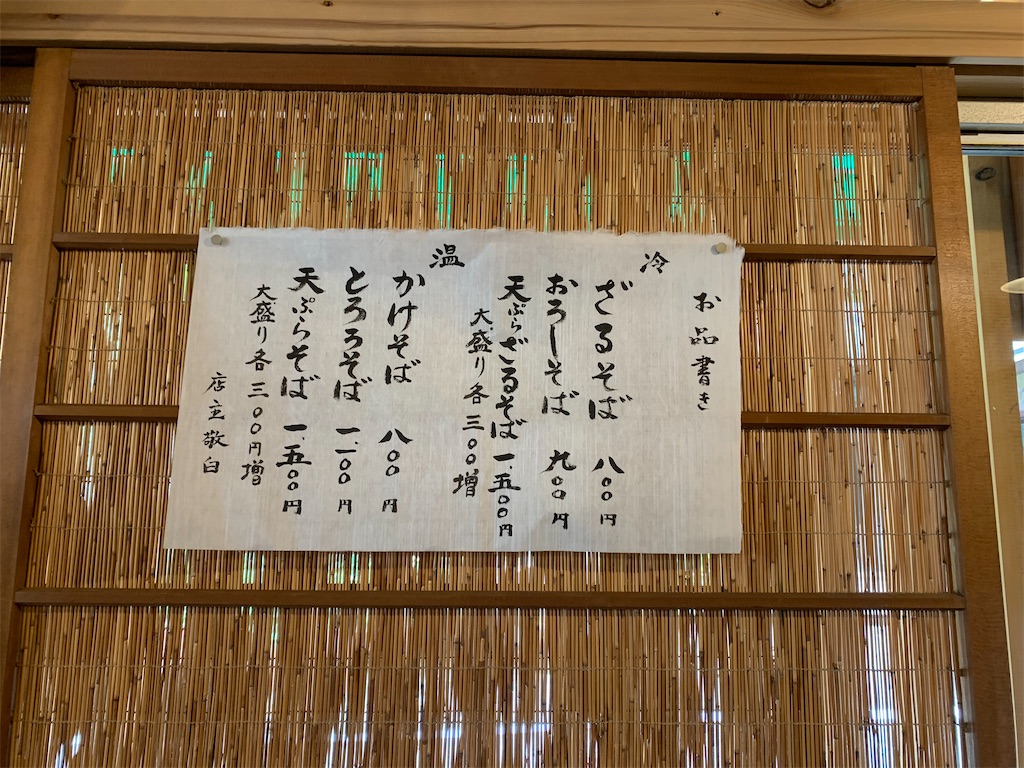 お品書き
冷
ざるそば 八〇〇円
おろしそば 九〇〇円
天ぷらざるそば 一、五〇〇円
大盛り各三〇〇増
温
かけそば 八〇〇円
とろろそば 一、一〇〇円
天ぷらそば 一、五〇〇円
大盛り各三〇〇円増
店主敬白